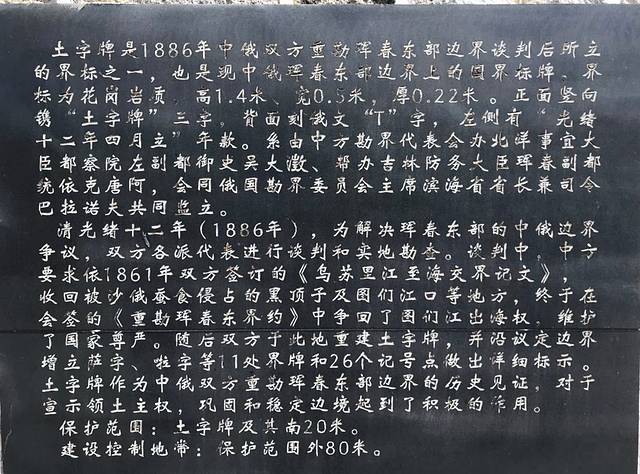 土字牌是1886年中俄双方重勘珲春东部边界谈判后所立
的界标之一，也是现中俄珲春东部边界上的国界标牌。界
标为花岗岩质，高1.4米、宽0.5米，厚0.22米。正面竖向
镌“土字牌”三字，背面刻俄文“T”字，左侧有“光绪
十二年四月立”年款。系由中方勘界代表会办北洋事宜大
臣都察院左副都御史吴大澂、帮办吉林防务大臣珲春副都
统依克唐阿，会同俄国勘界委员会主席滨海省省长兼司令
巴拉诺夫共同监立。
清光绪十二年（1886年），为解决珲春东部的中俄边界
争议，双方各派代表进行谈判和实地勘查。谈判中，中方
要求依1861年双方签订的《乌苏里江至海交界记文》，
收回被沙俄蚕食侵占的黑顶子及图们江口等地方，终于在
会签的《重勘珲春东界约》中争回了图们江出海权，维护
了国家尊严。随后双方于此地重建土字牌，并沿议定边界
增立萨字、啦字等11处界牌和26个记号点做出详细标示。
土字牌作为中俄双方重勘珲春东部边界的历史见证，对于
宣示领土主权，巩固和稳定边境起到了积极的作用。
保护范围：土字牌及其南20米。
建设控制地带：保护范围外80米。